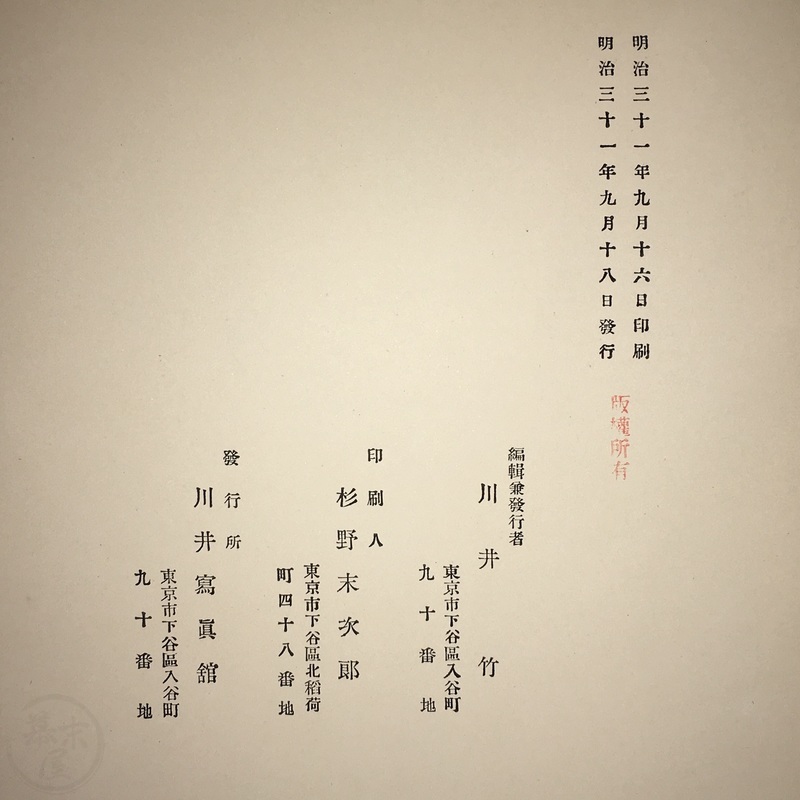 明治三十一年九月十六日印刷
明治三十一年九月十八日發行
版權所有
編輯兼發行者
川井竹
東京市下谷區入谷町
九十番地
印刷人
杉野末次郎
東京市下谷區北稻荷
町四十八番地
發行所
川井寫眞舘
東京市下谷區入谷町
九十番地
幕末屋